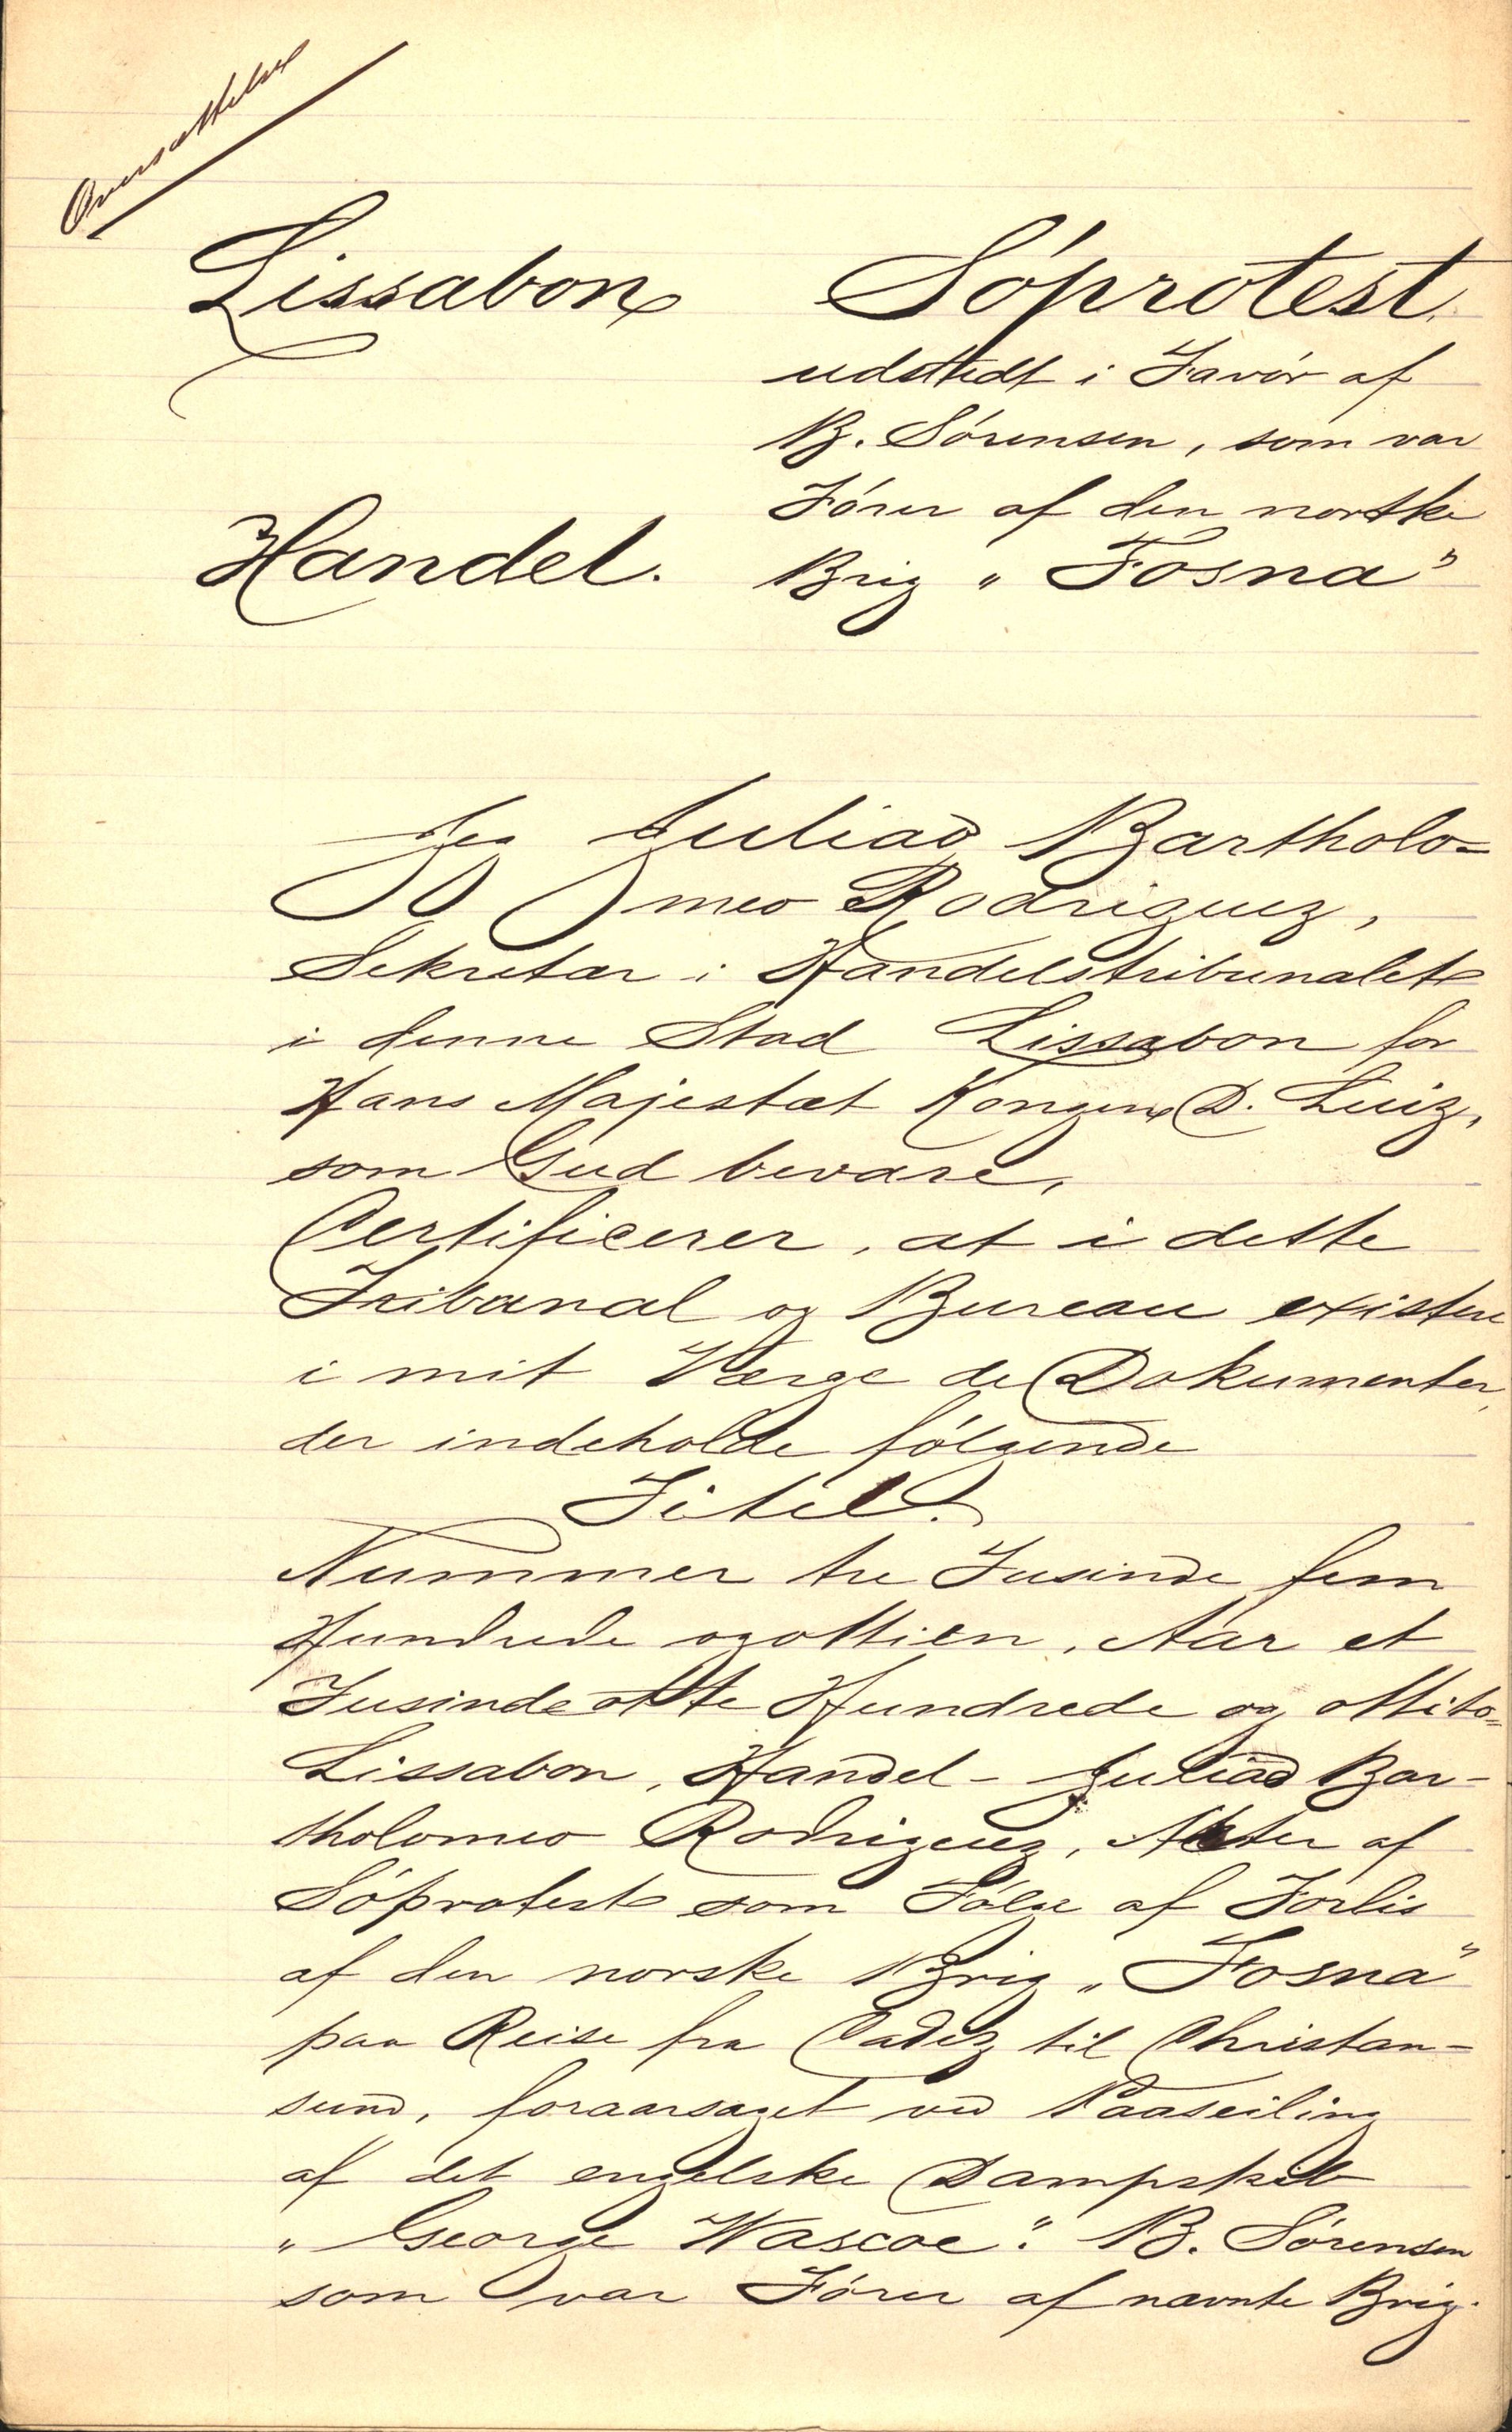 Oversættelse
Lissabon
Handel.
Sóprotest.
udstedt i Favór af
B. Sórensen, som var
Fórer af den norske
Brig „Fosna"
Jeg Juliaõ Bartholo=
meo Rodriguez,
Sekretær i Handelstribunalet
i denne Stad Lissabon for
Hans Majestæt Kongen D. Luiz,
som Gud bevare,
Certificerer, at i dette
Tribunal og Bureau existere
i mit Værge de Dokumenter,
der indeholde fólgende
Titel.
Nummer tre Tusinde fem
Hundrede og otti en, Aar et
Tusinde otte Hundrede og otti to=
Lissabon, Handel- Juliaõ Bar-
tholomeo Rodriguez, Akter af
Sóprotest som Fólge af Forlis
af den norske Brig „Fosna"
paa Reise fra Cadiz til Christan-
sund, foraarsaget ved Paaseiling
af det engelske Dampskib
„George Wascoe". B. Sórensen
som var Fórer af nævnte Brig.